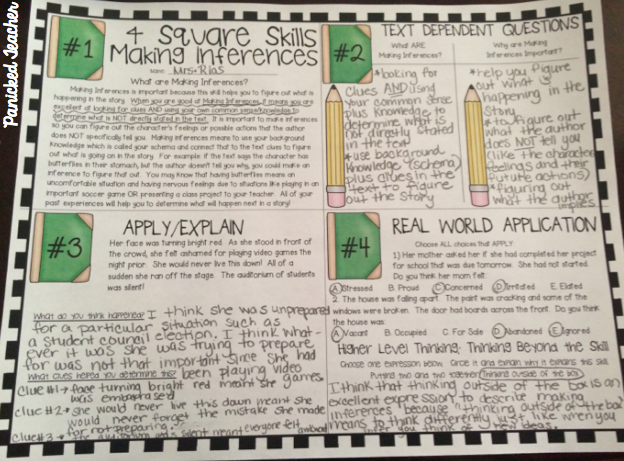 Panicked Teacher
#1
4 Square Skills
Making Inferences
Name Mrs. Rios
What are Making Inferences?
Making Inferences is important because this skill helps you to figure out what is
happening in the story. When you are good at Making Inferences, it means you are
excellent at looking for clues AND using your own common sense/knowledge to
determine what is NOT directly stated in the text. It is important to make inferences
so you can figure out the character's feelings or possible actions that the author
does NOT specifically tell you. Making inferences means to use your background
knowledge which is called your schema and connect that to the text clues to figure
out what is going on in the story. For example, if the text says the character has
butterflies in their stomach, but the author doesn't tell you why, you could make an
inference to figure that out. You may know that having butterflies means an
uncomfortable situation and having nervous feelings due to situations like playing in an
important soccer game OR presenting a class project to your teacher. All of your
past experiences will help you to determine what will happen next in a story!
#2
TEXT DEPENDENT QUESTIONS
What ARE
Making Inferences?
*looking for
clues AND using
your common sense
plus knowledge to
determine what is
not directly stated
in the text
*use background
knowledge (schema)
plus clues in the
text to figure
out the story
Why are Making
Inferences Important?
*help you figure
out what is
happening in the
story
*to figure out
what the author
does NOT tell you
(like the character
feelings and their
future actions)
*figuring out
what the author
implies
#3
APPLY/EXPLAIN
Her face was turning bright red. As she stood in front of
the crowd, she felt ashamed for playing video games the
night prior. She would never live this down! All of a
sudden she ran off the stage. The auditorium of students
was silent!
What do you think happened? I think she was unprepared
for a particular situation such as
a student council election. I think what-
ever it was she was trying to prepare
for was not that important since she had
been playing video
games.
What clues helped you determine this?
Clue #1→ face turning bright red meant she
was embarrassed
Clue #2→ she would never live this down meant she
would never forget the mistake she made
for not preparing.
Clue #3→ the auditorium was silent meant everyone felt awkward
#4
REAL WORLD APPLICATION
Choose ALL choices that APPLY.
1) Her mother asked her if she had completed her project
for school that was due tomorrow. She had not started.
Do you think her mom felt:
A Stressed B. Proud C Concerned D Irritated E. Elated
2. The house was falling apart. The paint was cracking and some of the
windows were broken. The door had boards across the front. Do you think
the house was:
A Vacant B. Occupied C. For Sale D Abandoned E Ignored
Higher Level Thinking: Thinking Beyond the Skill
Choose one expression below. Circle it and explain why it explains this skill.
Putting two and two together Thinking outside of the box
I think that thinking outside of the box is an
excellent expression to describe making
inferences because "thinking outside of the box"
means to think differently just like when you
infer you think of new ideas.